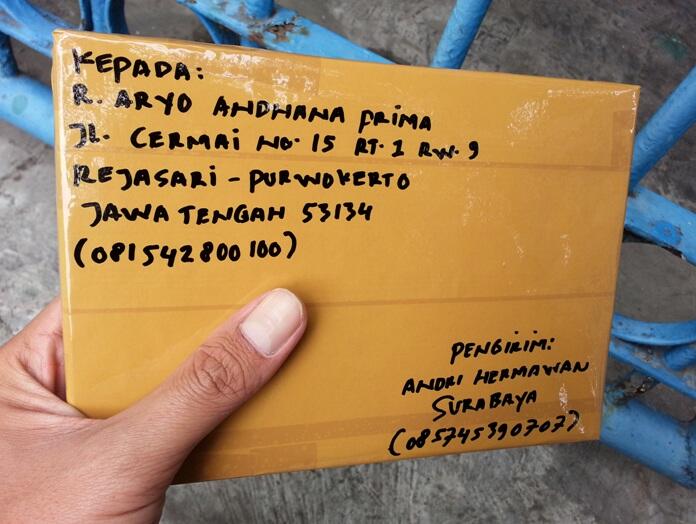 KEPADA:
R. ARYO ANDHANA PRIMA
JL. CERMAI NO. 15 RT. 1 RW. 9
REJASARI - PURWOKERTO
JAWA TENGAH 53134
(081542800100)
PENGIRIM:
ANDRI HERMAWAN
SURABAYA
(085745390707)